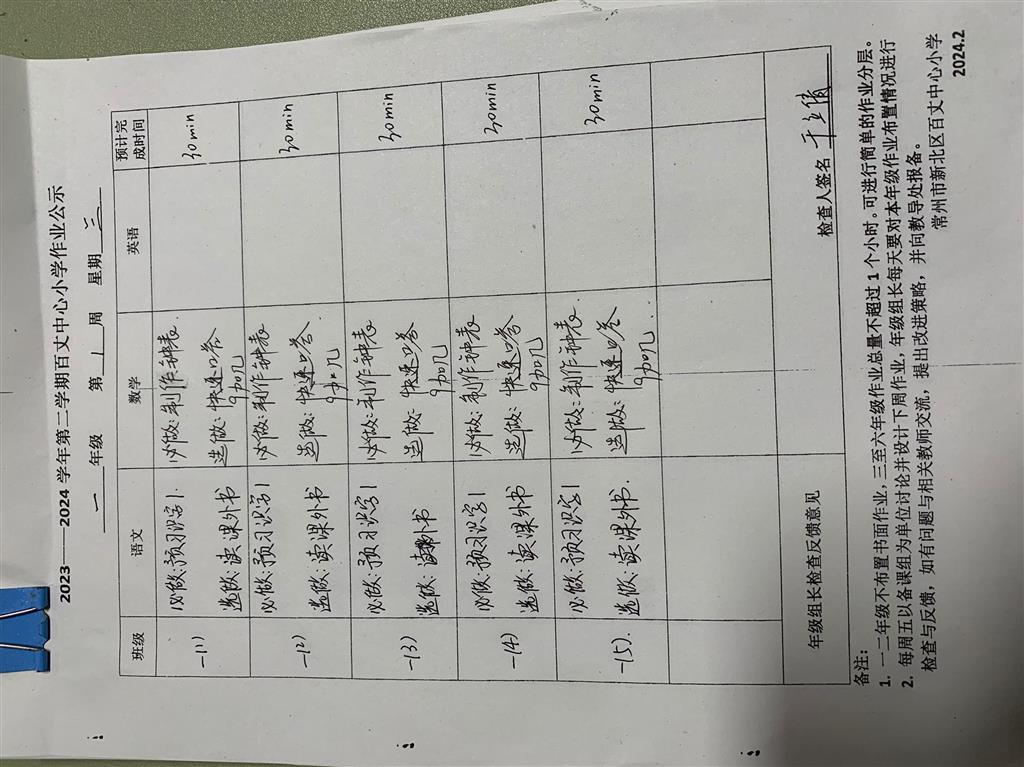 2023——2024学年第二学期百丈中心小学作业公示
一 年级 第 1 周 星期 三
班级 语文 数学 英语 预计完成时间
一(1) 必做:预习识字1. 必做:制作钟表. 30min
选做:读课外书 选做:快速口答
9加几
一(2) 必做:预习识字1 必做:制作钟表 30min
选做:读课外书 选做:快速口答
9加几
一(3) 必做:预习识字1 必做:制作钟表 30min
选做:读课外书 选做:快速口答
9加几
一(4) 必做:预习识字1 必做:制作钟表 30min
选做:读课外书 选做:快速口答
9加几
一(5). 必做:预习识字1 必做:制作钟表. 30min
选做:读课外书. 选做:快速口答
9加几
年级组长检查反馈意见 检查人签名
备注:
1. 一二年级不布置书面作业,三至六年级作业总量不超过1个小时。可进行简单的作业分层。
2. 每周五以备课组为单位讨论并设计下周作业,年级组长每天要对本年级作业布置情况进行
检查与反馈,如有问题与相关教师交流,提出改进策略,并向教导处报备。
常州市新北区百丈中心小学
2024.2